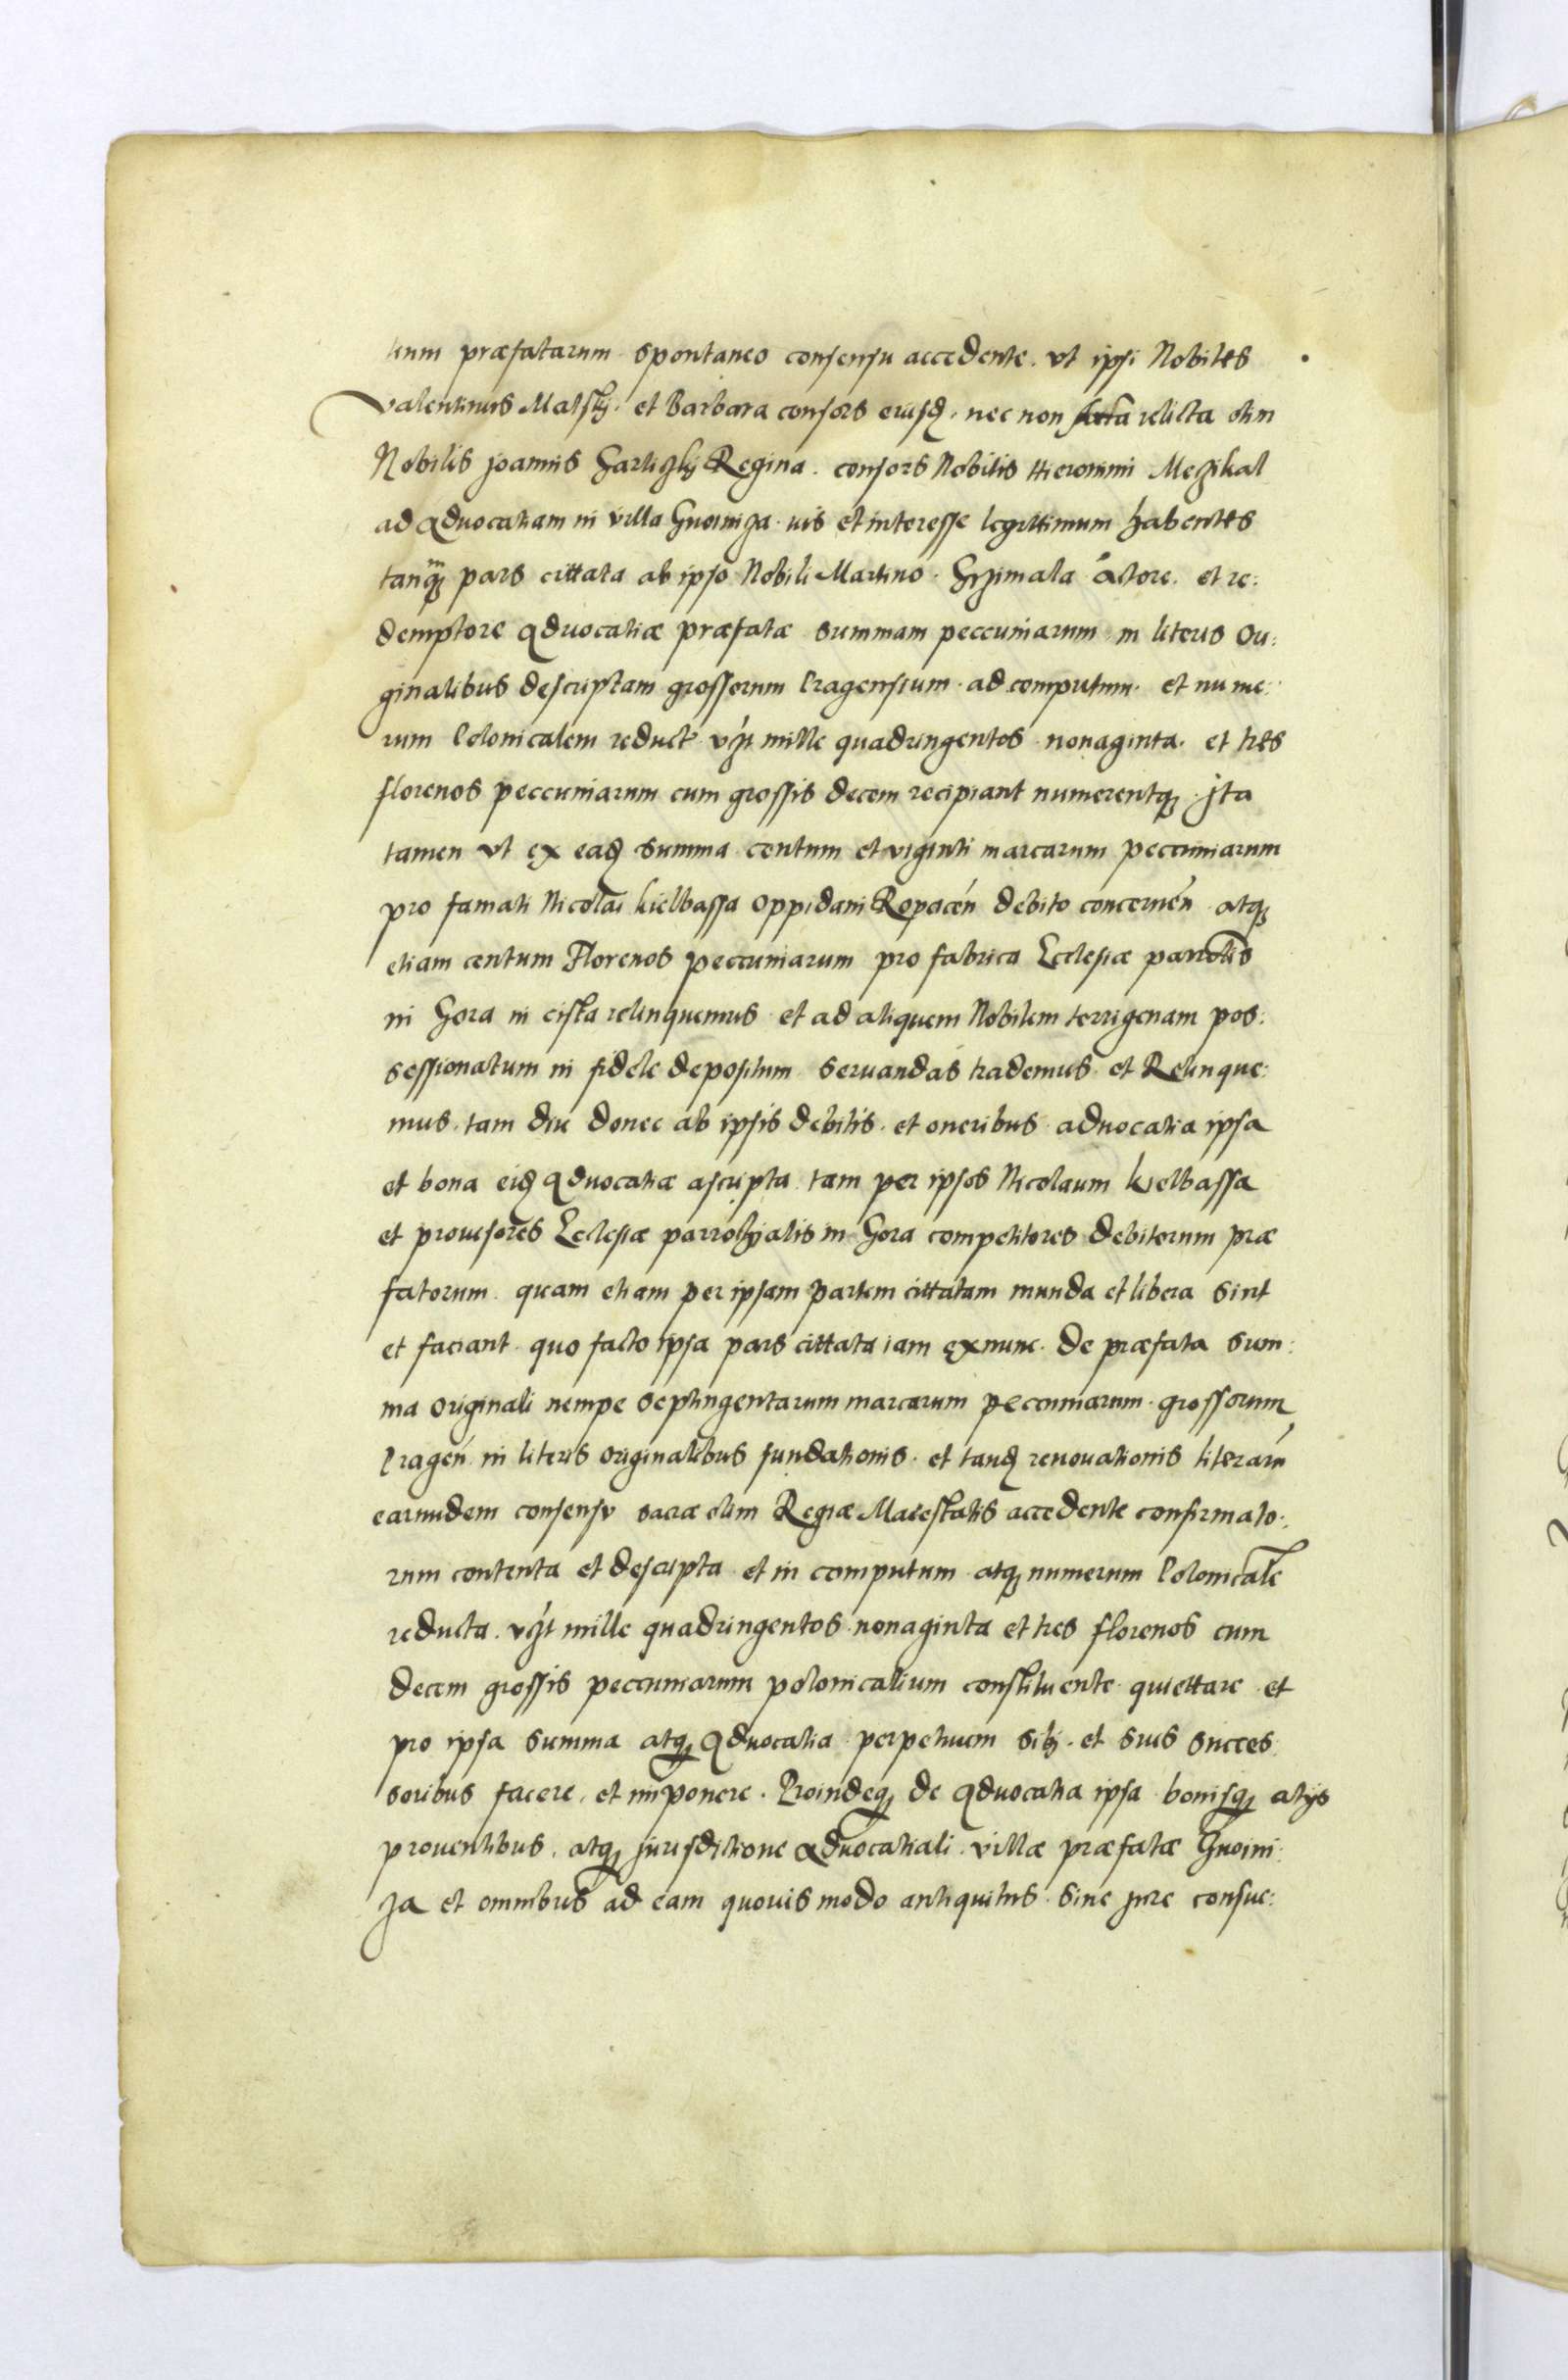 tium præfatarum spontaneo consensu accedente. vt ipsi Nobiles
Valentinus Malskj. et Barbara consors eiusdꝫ. nec non relicta olim
Nobilis Joannis Regina. consors Nobilis Hieronimi Mezikal
ad Aduocatiam in villa Gnoiniza. ius et interesse legittimum habentes
tanqꝫ pars cittata ab ipso Nobili Martino. Grzimala Actore. et re:
demptore Aduocatiæ præfatæ summam peccuniarum in literis Ori:
ginalibus descriptam grossorum Pragensium. ad computum. et nume:
rum Polonicalem reduct. vꝫt mille quadringentos nonaginta. et tres
florenos peccuniarum cum grossis decem recipiant numerentqꝫ. Jta
tamen vt ex eadꝫ summa centum et viginti marcarum peccuniarum
pro famati Nicolai Kielbassa Oppidani Ropacen debito concernen atqꝫ
etiam centum Florenos peccuniarum pro fabrica Ecclesiæ parrolis
in Gora in cista relinquemus et ad aliquem Nobilem terrigenam pos:
sessionatum in fidele depositum seruandas trademus et Relinque:
mus. tam diu donec ab ipsis debitis. et oneribus aduocatia ipsa
et bona eidꝫ Aduocatiæ ascripta tam per ipsos Nicolaum Kielbassa
et prouisores Ecclesiæ parrochialis in Gora competitores debitorum præ
fatorum. quam etiam per ipsam partem cittatam munda et libera sint
et faciant. quo facto ipsa pars cittata iam exnunc. de præfata sum:
ma originali nempe septingentarum marcarum peccuniarum. grossorum
Pragen in literis originalibus fundationis. et tandꝫ renouationis literarum
earundem consensv sacræ olim Regiæ Maiestatis accedente confirmato:
rum contenta et descripta et in computum atqꝫ numerum Polonicale
reducta. vꝫt mille quadringentos nonaginta et tres florenos cum
decem grossis peccuniarum polonicalium constituente quiettare et
pro ipsa summa atqꝫ Aduocatia perpetuum sibj. et suis succes
soribus facere, et imponere. Proindeqꝫ de Aduocatia ipsa bonisqꝫ alijs
prouentibus. atqꝫ jurisditione Aduocatiali. villæ præfatæ Gnoini:
za et omnibus ad eam quouis modo antiquitus. siue jure consue: